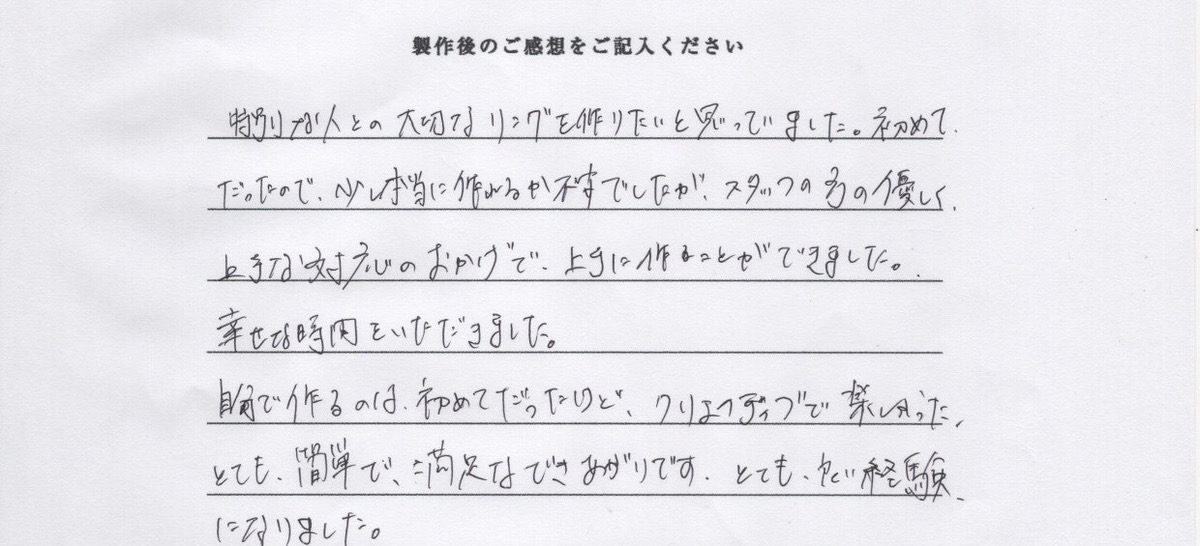 製作後のご感想をご記入ください
特別な人との大切なリングを作りたいと思っていました。初めて
だったので、少し本当に作れるか不安でしたが、スタッフの方の優しく、
上手な対応のおかげで、上手に作ることができました。
幸せな時間をいただきました。
自分で作るのは、初めてだったけど、クリエイティブで楽しかった、
とても、簡単で、満足なできあがりです。とても、良い経験
になりました。